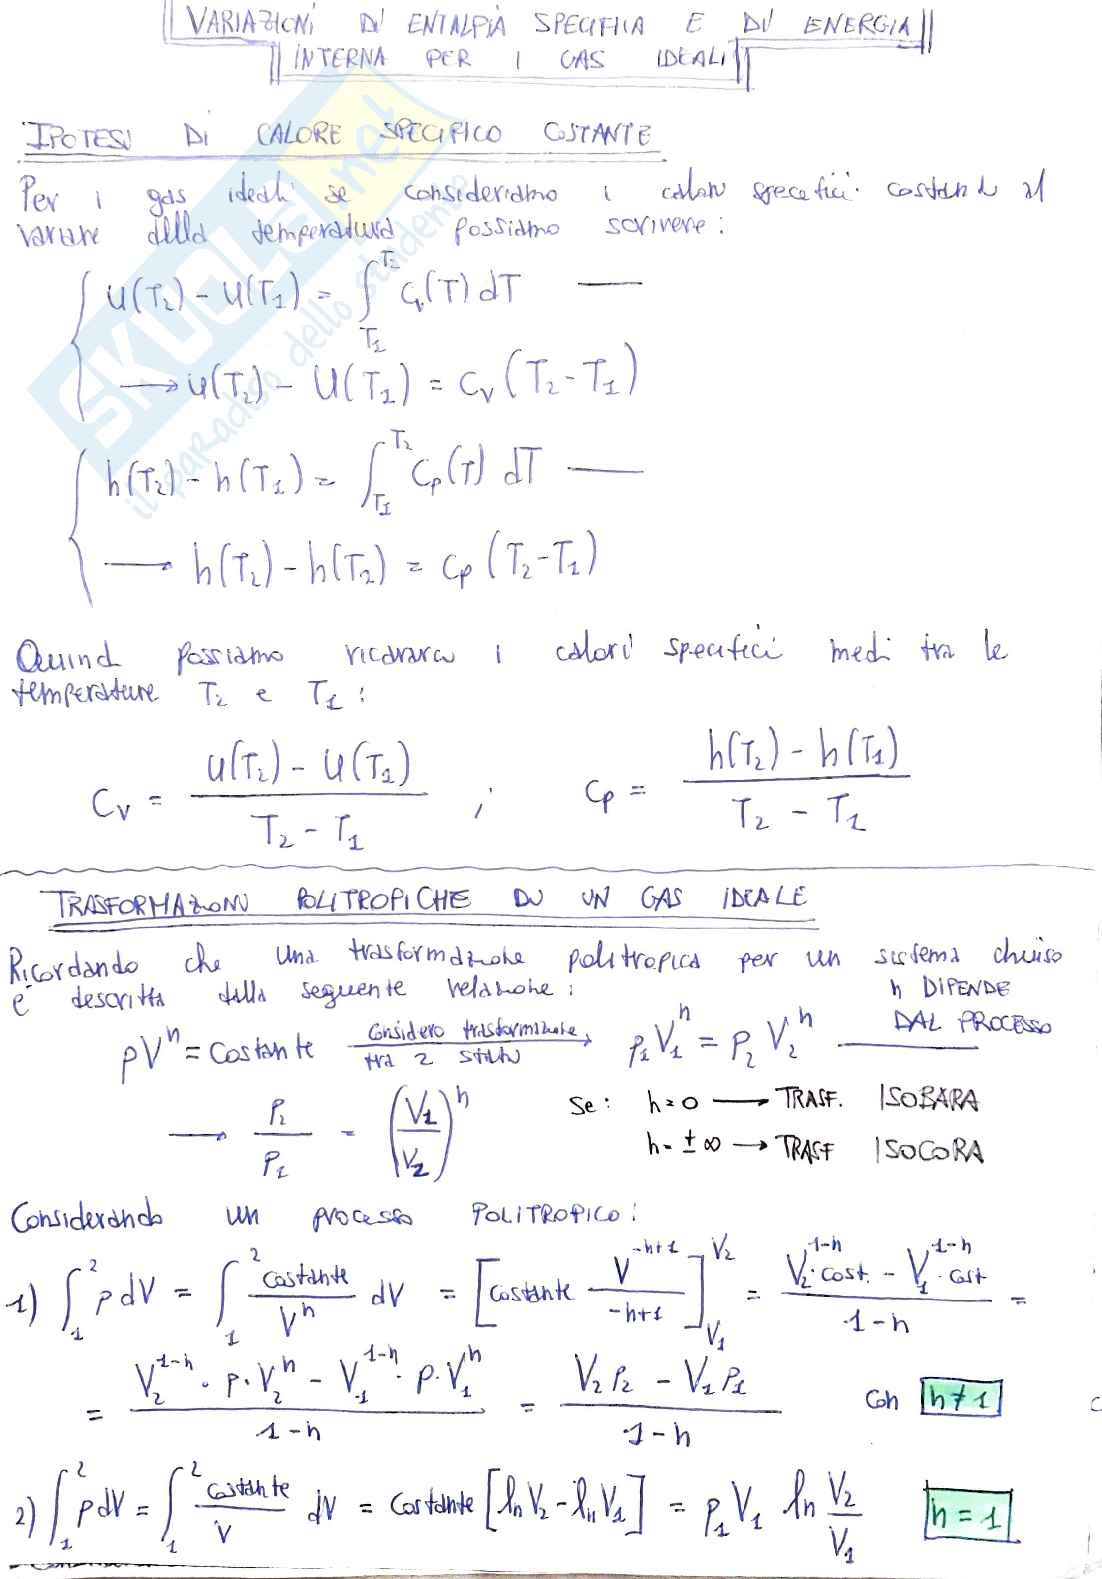 VARIAZIONI DI ENTALPIA SPECIFICA E DI ENERGIA
INTERNA PER I GAS IDEALI
IPOTESI DI CALORE SPECIFICO COSTANTE
Per i gas ideali se consideriamo i calori specifici costanti al
variare della temperatura possiamo scrivere:
u(T₂) - u(T₁) = ∫_{T₁}^{T₂} Cᵥ(T) dT —
→ u(T₂) - u(T₁) = Cᵥ (T₂ - T₁)
h(T₂) - h(T₁) = ∫_{T₁}^{T₂} Cp(T) dT —
→ h(T₂) - h(T₂) = Cp (T₂ - T₁)
Quindi possiamo ricavarci i calori specifici medi tra le
temperature T₂ e T₁:
Cᵥ = (u(T₂) - u(T₁)) / (T₂ - T₁) ; Cp = (h(T₂) - h(T₁)) / (T₂ - T₁)
TRASFORMAZIONI POLITROPICHE DI UN GAS IDEALE
Ricordando che una trasformazione politropica per un sistema chiuso
è descritta dalla seguente relazione:
n DIPENDE
DAL PROCESSO
pVⁿ = costante considero trasformazione tra 2 stati → p₁V₁ⁿ = p₂V₂ⁿ —
→ P₂ / P₁ = (V₁ / V₂)ⁿ
Se: n=0 → TRASF. ISOBARA
n = ±∞ → TRASF ISOCORA
Considerando un processo POLITROPICO:
1) ∫₁² p dV = ∫₁² costante / Vⁿ dV = [costante V^{-n+1} / (-n+1)]_{V₁}^{V₂} = (V₂^{1-n} · cost. - V₁^{1-n} · cost) / (1-n) =
= (V₂^{1-n} · p · V₂ⁿ - V₁^{1-n} · p · V₁ⁿ) / (1-n) = (V₂P₂ - V₁P₁) / (1-n) con n≠1
2) ∫₁² p dV = ∫₁² costante / V dV = costante [ln V₂ - ln V₁] = p₁V₁ ln V₂ / V₁ n = 1
SKUOLA.net
il paradiso dello studente